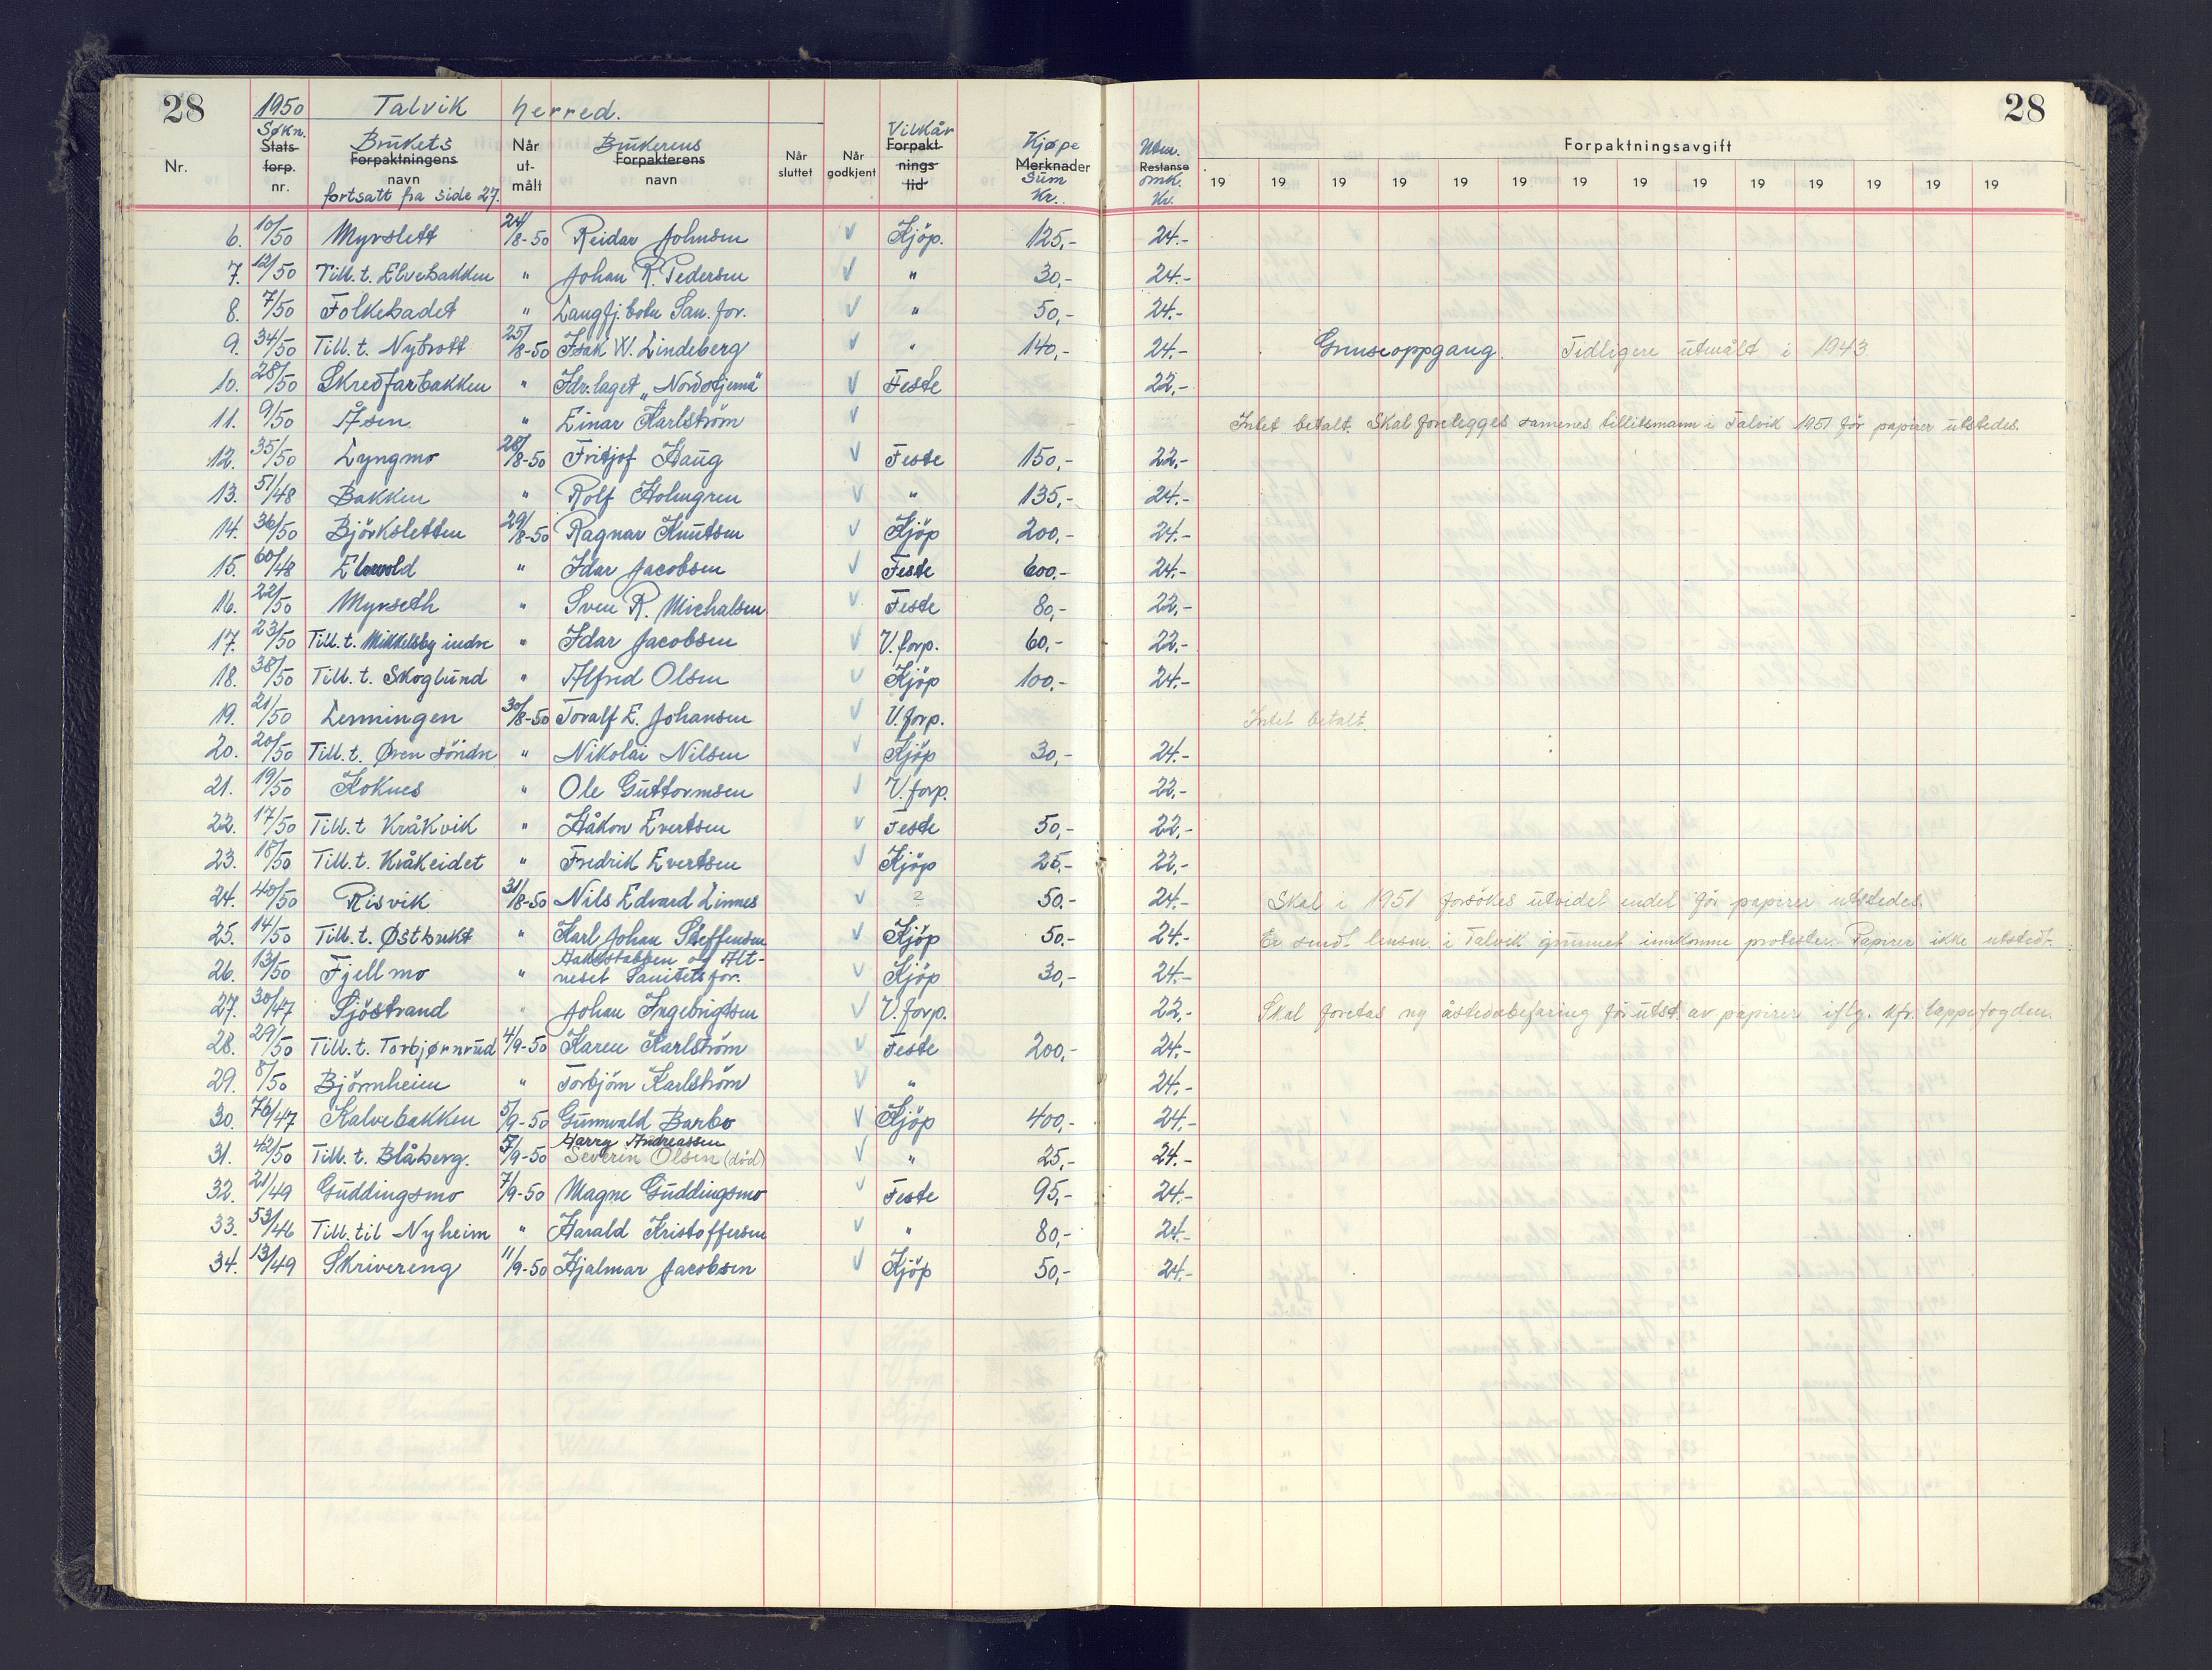 28 1950 Talvik herred. 28
Nr. Søkn. Stats- forp. nr. Brukets Forpaktningens navn fortsatt fra side 27. Når ut- målt Brukerens Forpakterens navn Når sluttet Når godkjent Vilkår Forpakt- nings- tid Kjøpe Merknader sum Kr. Utm. Restanse omk. Kr. Forpaktningsavgift
19 19 19 19 19 19 19 19 19 19 19 19 19 19
6. 10/50 Myrslett 24/8-50 Reidar Johnsen Kjöp. 125,- 24.-
7. 12/50 Till. t. Elvebakken " Johan R. Pedersen " 30,- 24.-
8. 7/50 Folkebadet " Langfj. botn San. for. " 50,- 24.-
9. 34/50 Till. t. Nybrott 25/8-50 Isak W. Lindeberg " 140,- 24.- Grenseoppgang. Tidligere utmålt i 1943.
10. 28/50 Skredfarbakken " Idr. laget „Nordstjerna" Feste 22,-
11. 9/50 Åsen " Einar Karlström Intet betalt. Skal forelegges samenes tillitsmann i Talvik 1951 för papirer utstedes.
12. 35/50 Lyngmo 28/8-50 Fritjof Haug Feste 150,- 22,-
13. 51/48 Bakken " Rolf Holmgren " 135,- 24.-
14. 36/50 Björksletten 29/8-50 Ragnar Knutsen Kjöp 200,- 24.-
15. 60/48 Elvevold " Idar Jacobsen Feste 600,- 24.-
16. 22/50 Myrseth " Sven R. Michalsen Feste 80,- 22,-
17. 23/50 Till. t. Mikkelsby indre " Idar Jacobsen V. forp. 60,- 22,-
18. 38/50 Till. t. Skoglund " Alfred Olsen Kjöp 100,- 24.-
19. 21/50 Lenningen 30/8-50 Toralf E. Johansen V. forp. Intet betalt.
20. 20/50 Till. t. Øren söndre " Nikolai Nilsen Kjöp 30,- 24.-
21. 19/50 Koknes " Ole Guttormsen V. forp. 22.-
22. 17/50 Till. t Kråkvik " Håkon Evertsen Feste 50,- 22,-
23. 18/50 Till. t. Kråkeidet " Fredrik Evertsen Kjöp 25,- 22,-
24. 40/50 Risvik 31/8-50 Nils Edvard Linnes ? 50.- 24.- Skal i 1951 forsökes utvidet endel för papirer utstedes.
25. 14/50 Till. t. Østbukt " Karl Johan Steffensen Kjöp 50.- 24.- Er sendt lensm. i Talvik grunnet innkomne protester. Papirer ikke utstedt.
26. 13/50 Fjellmo " Haldstabben og Alt- neset Sanitetsfor. Kjöp 30,- 24.-
27. 30/47 Sjöstrand " Johan Ingebrigtsen V. forp. 22,- Skal foretas ny åstedsbefaring för utst. av papirer iflg. kfr. lappefogden.
28. 29/50 Till. t. Torbjørnrud 4/9-50 Karen Karlström Feste 200,- 24.-
29. 8/50 Björnheim " Torbjörn Karlström " 24.-
30. 76/47 Kalvebakken 5/9-50 Gunnvald Barbo Kjöp 400,- 24.-
31. 42/50 Till. t. Blåberg. 5/9-50 Harry Andreassen Severin Olsen (död) " 25,- 24.-
32. 21/49 Guddingsmo 7/9-50 Magne Guddingsmo Feste 95,- 24.-
33. 53/46 Till. til Nyheim " Harald Kristoffersen " 80,- 24.-
34. 13/49 Skrivereng 11/9-50 Hjalmar Jacobsen Kjöp 50,- 24.-